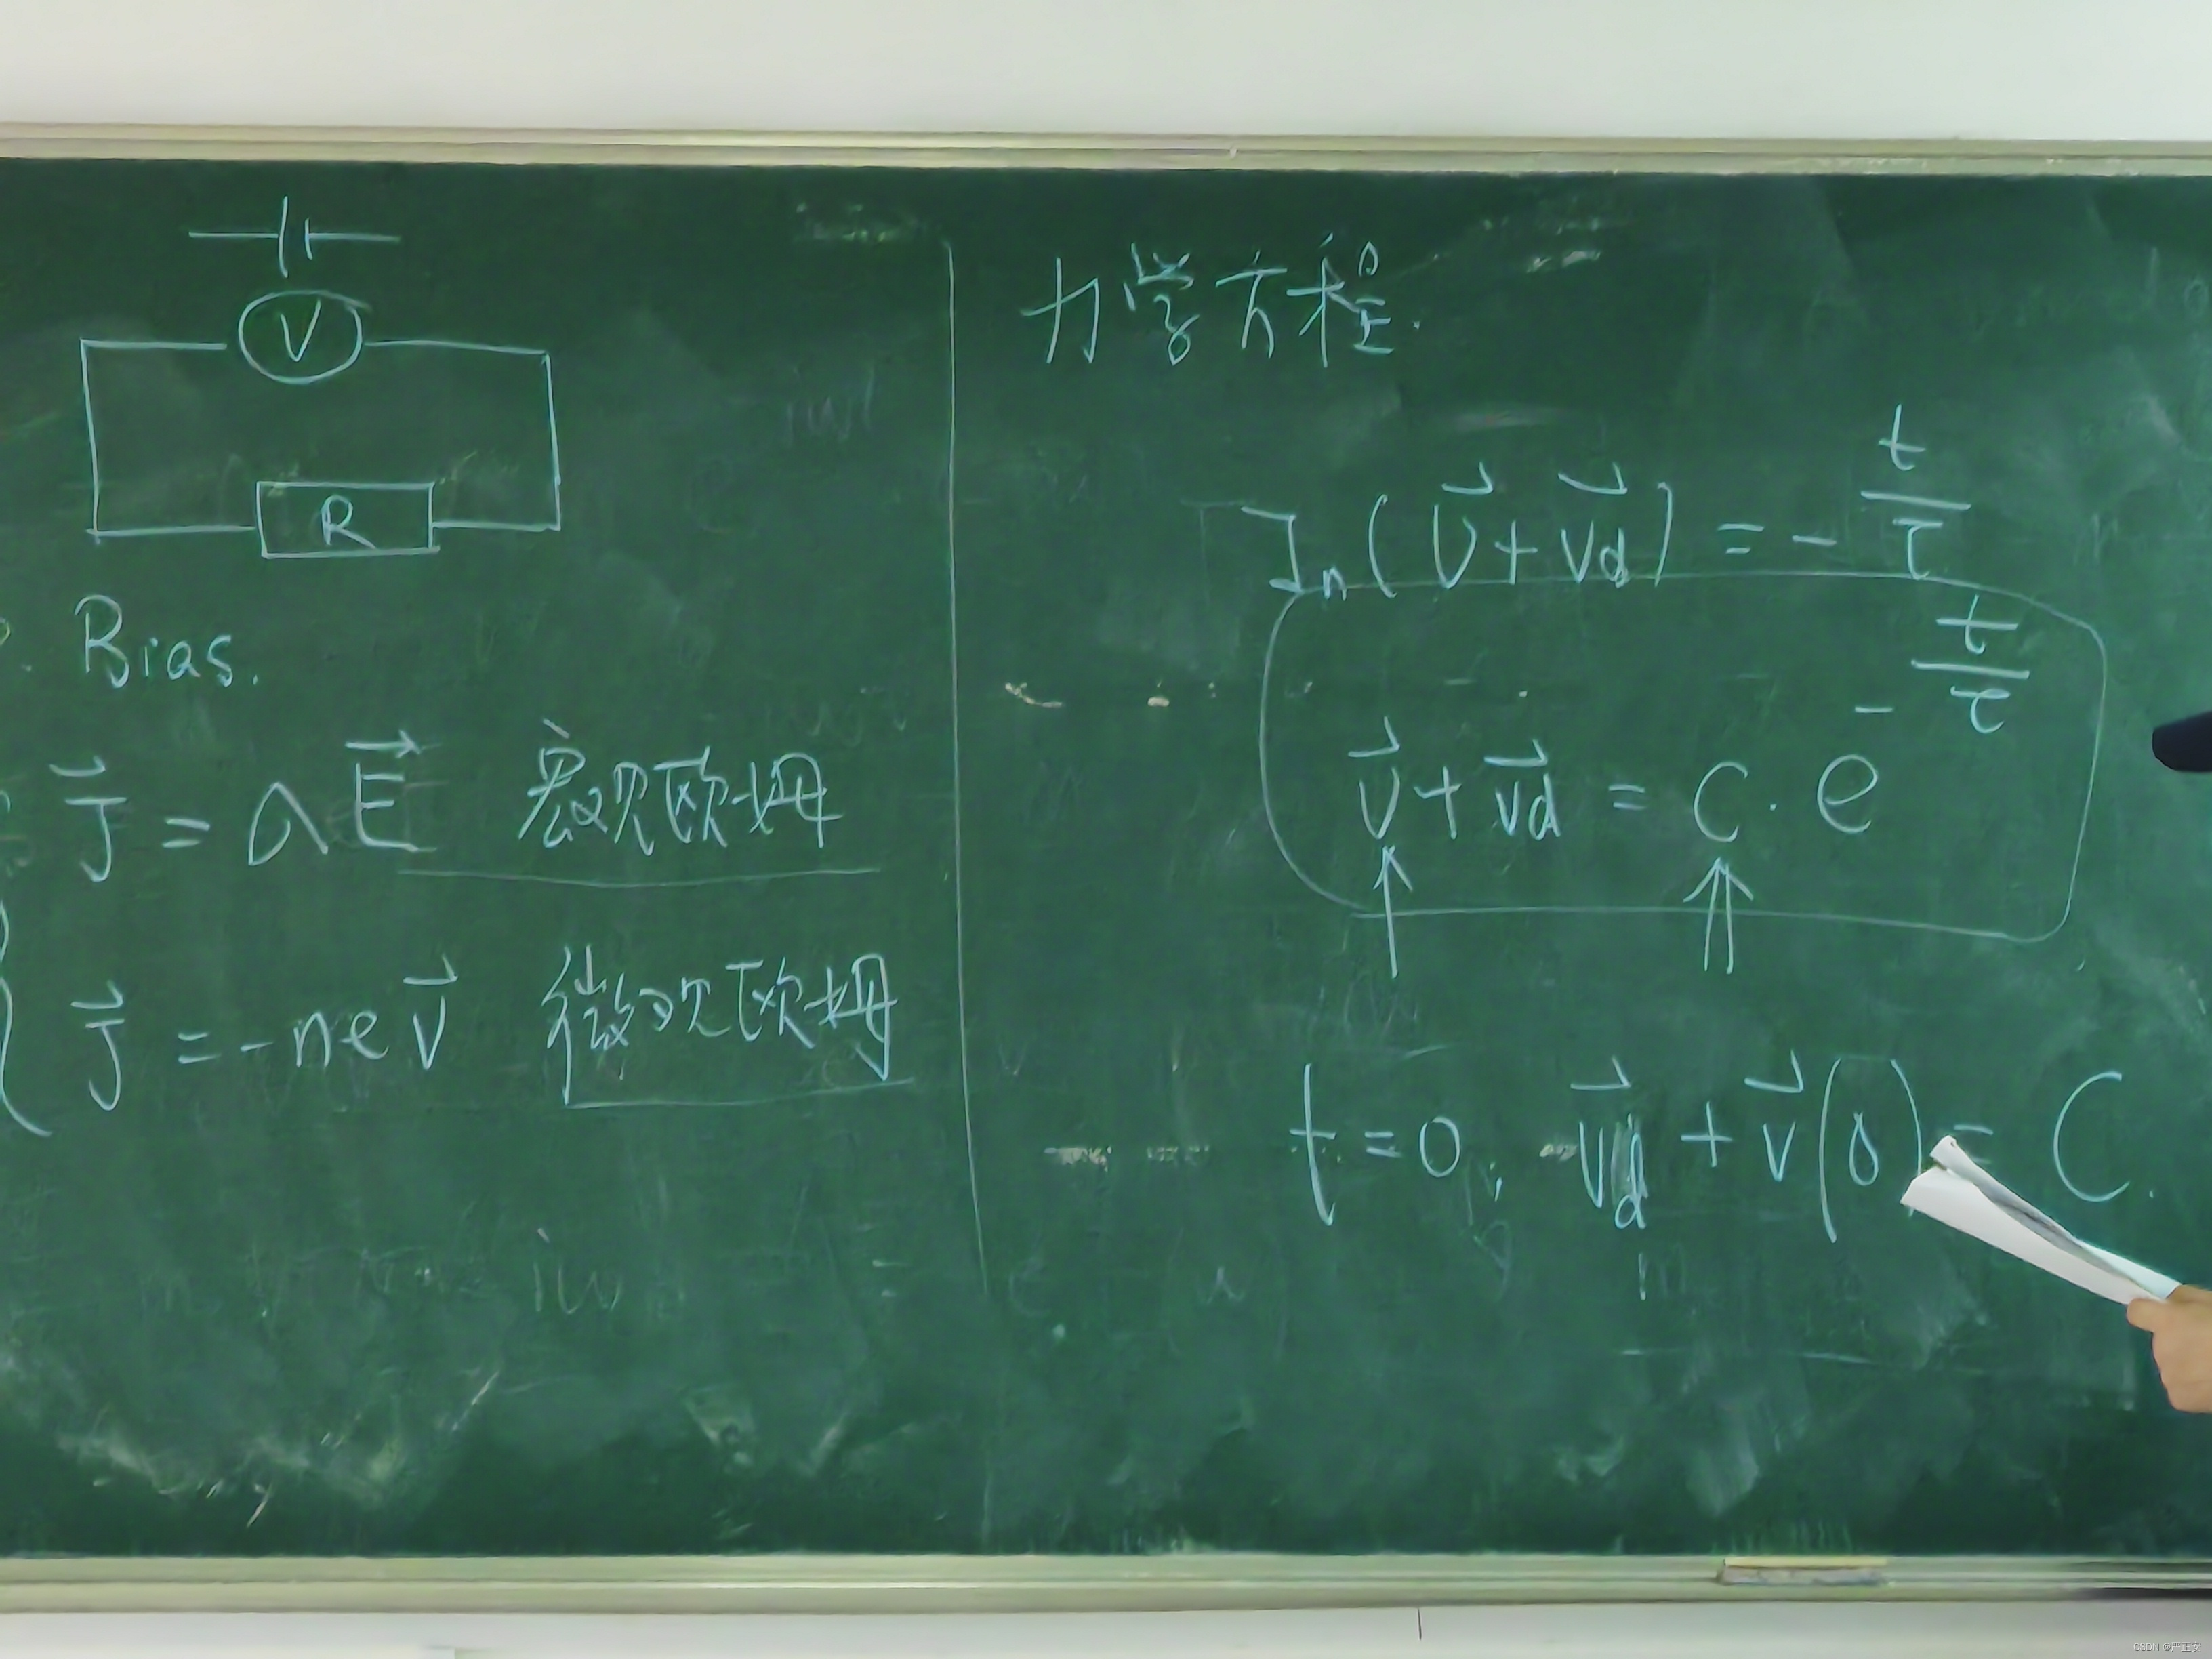 V
R
Bias.
J⃗ = σ E⃗ 宏观欧姆
J⃗ = -ne v⃗ 微观欧姆
力学方程.
ln(v⃗+v⃗d) = - t/τ
v⃗+v⃗d = C·e^(-t/τ)
t=0, v⃗d + v⃗(0) = C.
CSDN @严正安